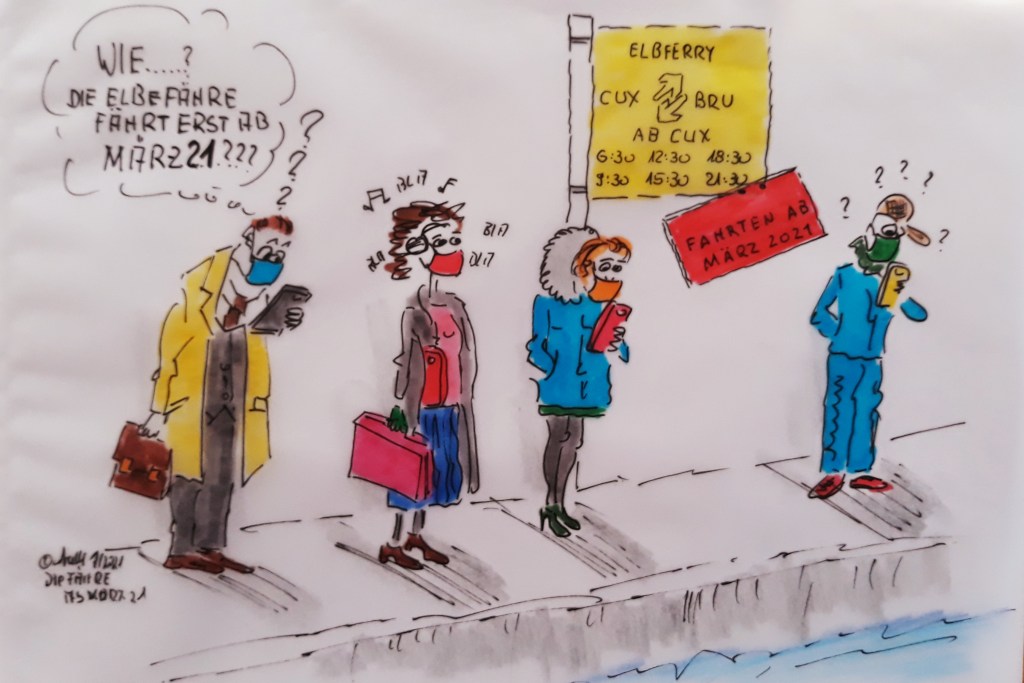 WIE.....?
DIE ELBEFÄHRE
FÄHRT ERST AB
MÄRZ 21.???
?
?
?
BLA
BLA
BLA
BLA
ELBFERRY
CUX BRU
AB CUX
6:30 12:30 18:30
9:30 15:30 21:30
FAHRTEN AB
MÄRZ 2021
? ? ?
? ?
DIE FÄHRE
MÄRZ 21